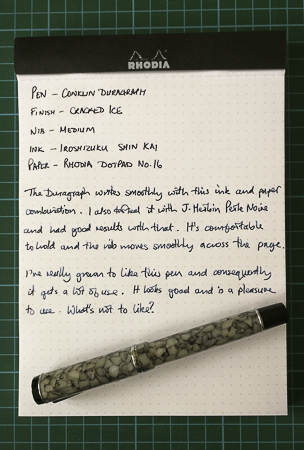 RHODIA
PEN – CONKLIN DURAGRAPH
FINISH – CRACKED ICE
NIB – MEDIUM
INK – IROSHIZUKU SHIN KAI
PAPER – RHODIA DOTPAD No. 16
The Duragraph writes smoothly with this ink and paper
combination. I also tested it with J. Herbin Perle Noire
and had good results with that. It's comfortable
to hold and the nib moves smoothly across the page.
I've really grown to like this pen and consequently
it gets a lot of use. It looks good and is a pleasure
to use. What's not to like?